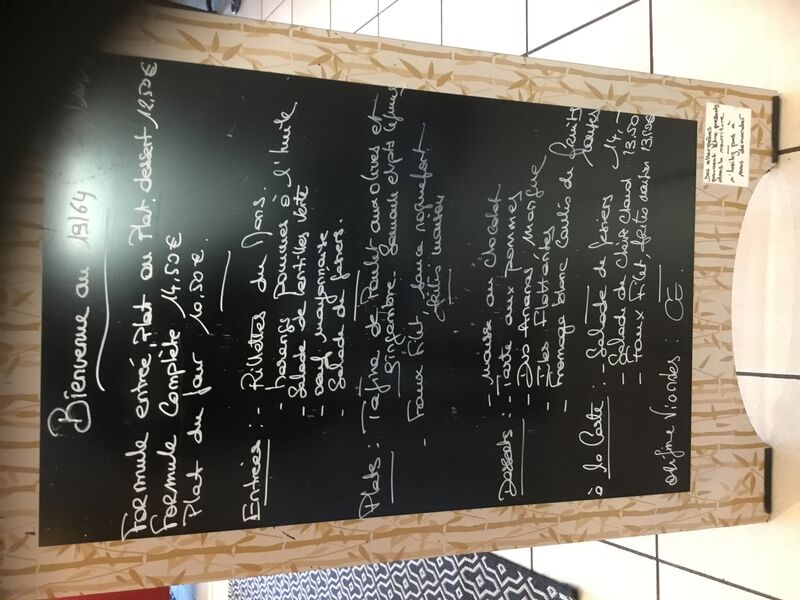 Bienvenue au 19/64
Formule entrée Plat ou Plat dessert 12,50€
Formule Complète 14,50€
Plat du jour 10.50€.
Entrées : - Rillettes du Mans.
- harengs pommes à l'huile
- Salade de lentilles verte
- oeuf mayonnaise
- Salade de gésiers.
Plats : Tajine de Poulet aux olives et
gingembre. Semoule et pts légumes
- Faux Filet, sauce roquefort.
frites maison
Desserts : - Mousse au Chocolat
- Tarte aux pommes
- Duo Ananas, Mangue
- Iles Flottantes
- Fromage blanc Coulis de fruits
à la Carte : - Salade de gésiers 14,-
- Salade de Chèvre Chaud 13,50
- Faux Filet, frites maison 13,50€
origine Viandes : CE.
Des allergènes
peuvent être présents
dans la nourriture
n'hésitez pas à
nous demander